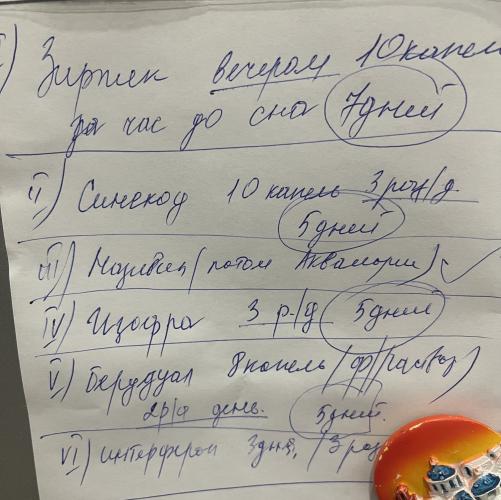 I) Зиртек вечером 10 капель
за час до сна 7 дней
II) Синекод 10 капель 3 раз/д.
5 дней
III) Називин (потом Аквамарин)
IV) Изофра 3 р./д 5 дней
V) Беродуал 8 капель (ф/раствор)
2р/а день. 5 дней.
VI) интерферон 3 дня, / 3 раз